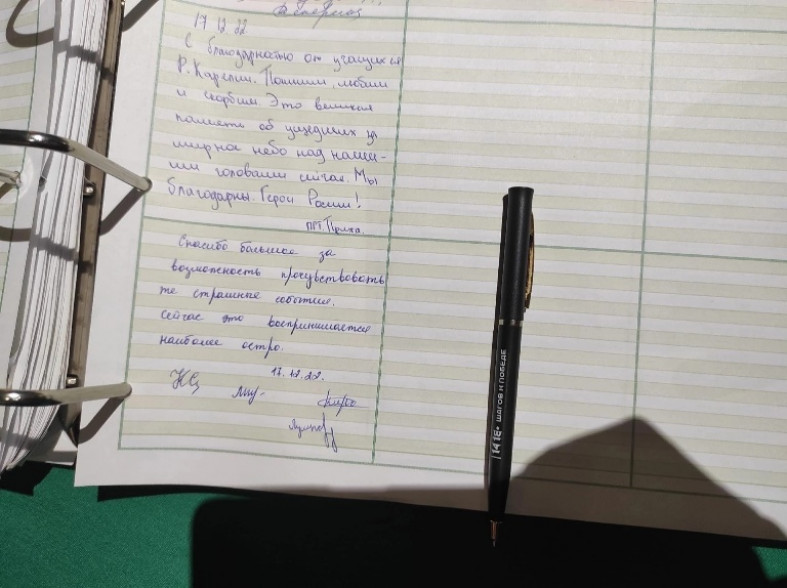 17.12.22
С благодарностью от учащихся
Р. Карелии. Помним, любим
и скорбим. Это великая
память об ушедших за
мирное небо над наши-
ми головами сейчас. Мы
благодарны. Герои России!
пгт. Пряжа.
Спасибо большое за
возможность прочувствовать
те страшные события.
Сейчас это воспринимается
наиболее остро.
17.12.22.
1418• ШАГОВ К ПОБЕДЕ